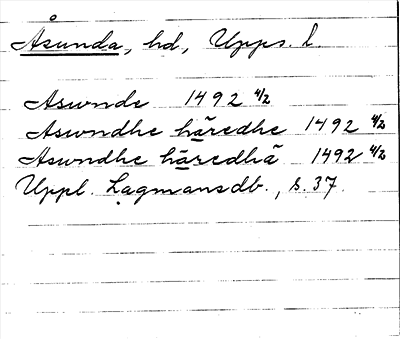 Åsunda, hd, Upps. l.
Aswnde 1492 4/2
Aswndhe häredhe 1492 4/2
Aswndhe häredhä 1492 4/2
Uppl. Lagmansdb., s. 37.